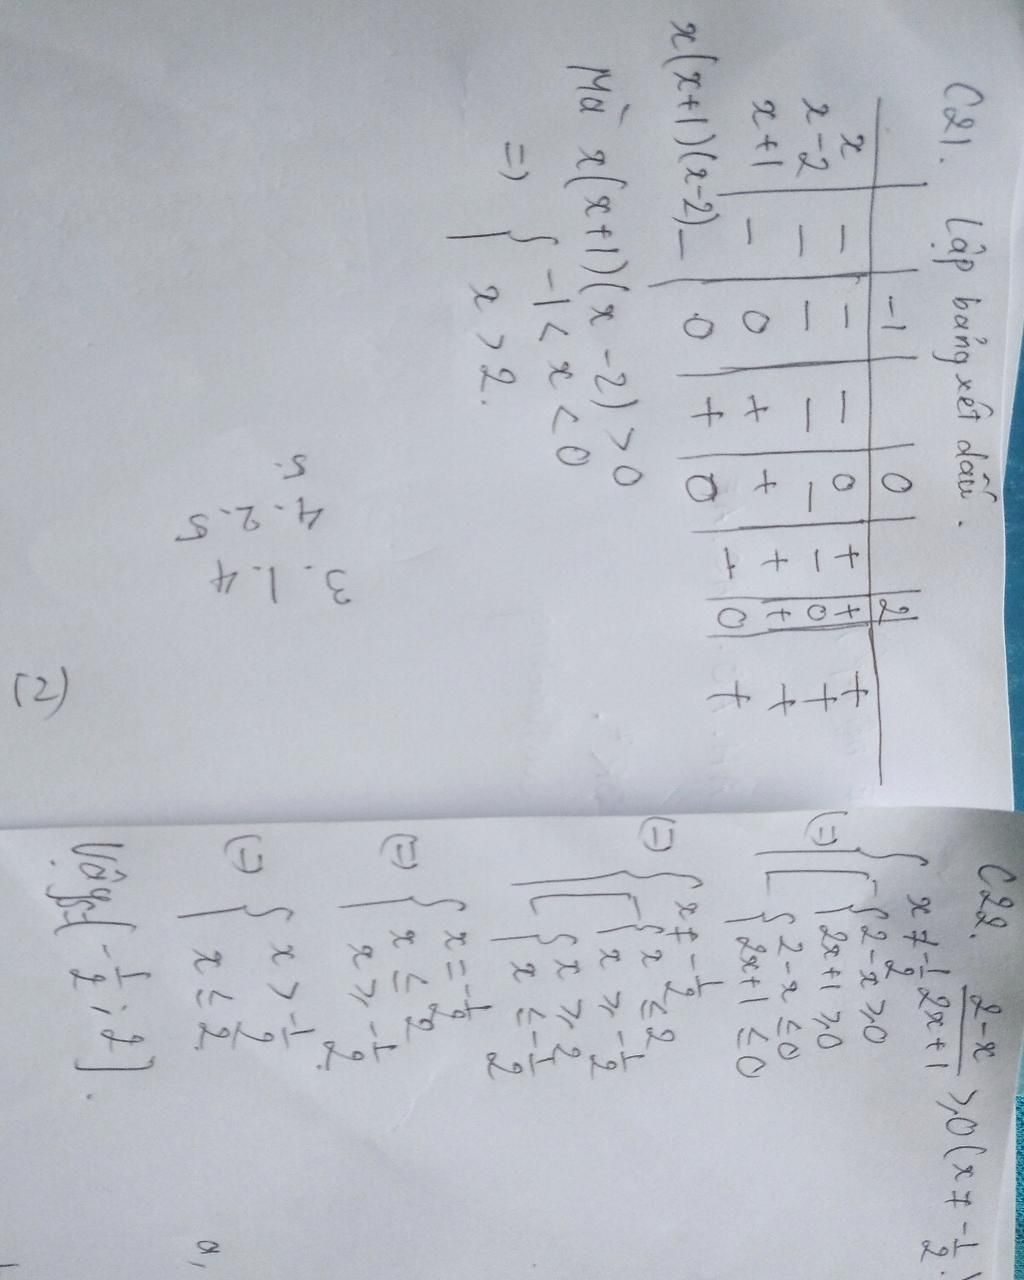 C21. Lập bảng xét dấu.
-1 0 2
x - - - 0 + + +
x-2 - - - - - 0 +
x+1 - 0 + + + + +
x(x+1)(x-2) - 0 + 0 - 0 +
Mà x(x+1)(x-2) > 0
=> { -1 < x < 0
x > 2.
3.1.4
4.2.5
5.
(2)
C22. (2-x)/(2x+1) ≥ 0 (x ≠ -1/2).
x ≠ -1/2
(=) { [ { 2-x ≥ 0
2x+1 ≥ 0
{ 2-x ≤ 0
2x+1 ≤ 0
(=) { x ≠ -1/2
[ { x ≤ 2
x ≥ -1/2
{ x ≥ 2
x ≤ -1/2
(=) { x = -1/2
x ≤ 2
x ≥ -1/2.
(=) { x > -1/2
x ≤ 2.
Vậy (-1/2; 2].
a,